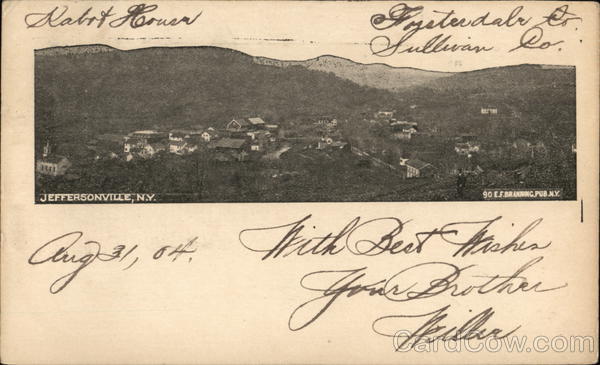 Kabot House
Fosterdale Co.
Sullivan Co.
JEFFERSONVILLE, N.Y.
90 E.F. BRANNING, PUB. N.Y.
Aug 31, 04.
With Best Wishes
Your Brother
Willer
CardCow.com